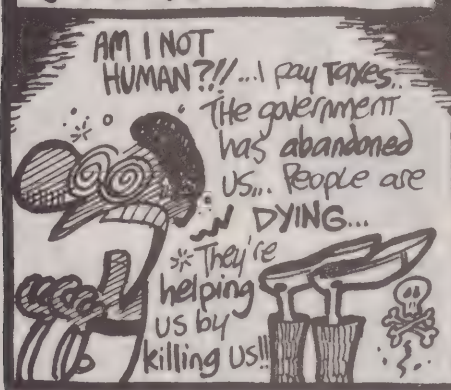 AM I NOT
HUMAN?!! ...I pay Taxes..
The government
has abandoned
us... People are
DYING...
* They're
helping
us by
killing us!!